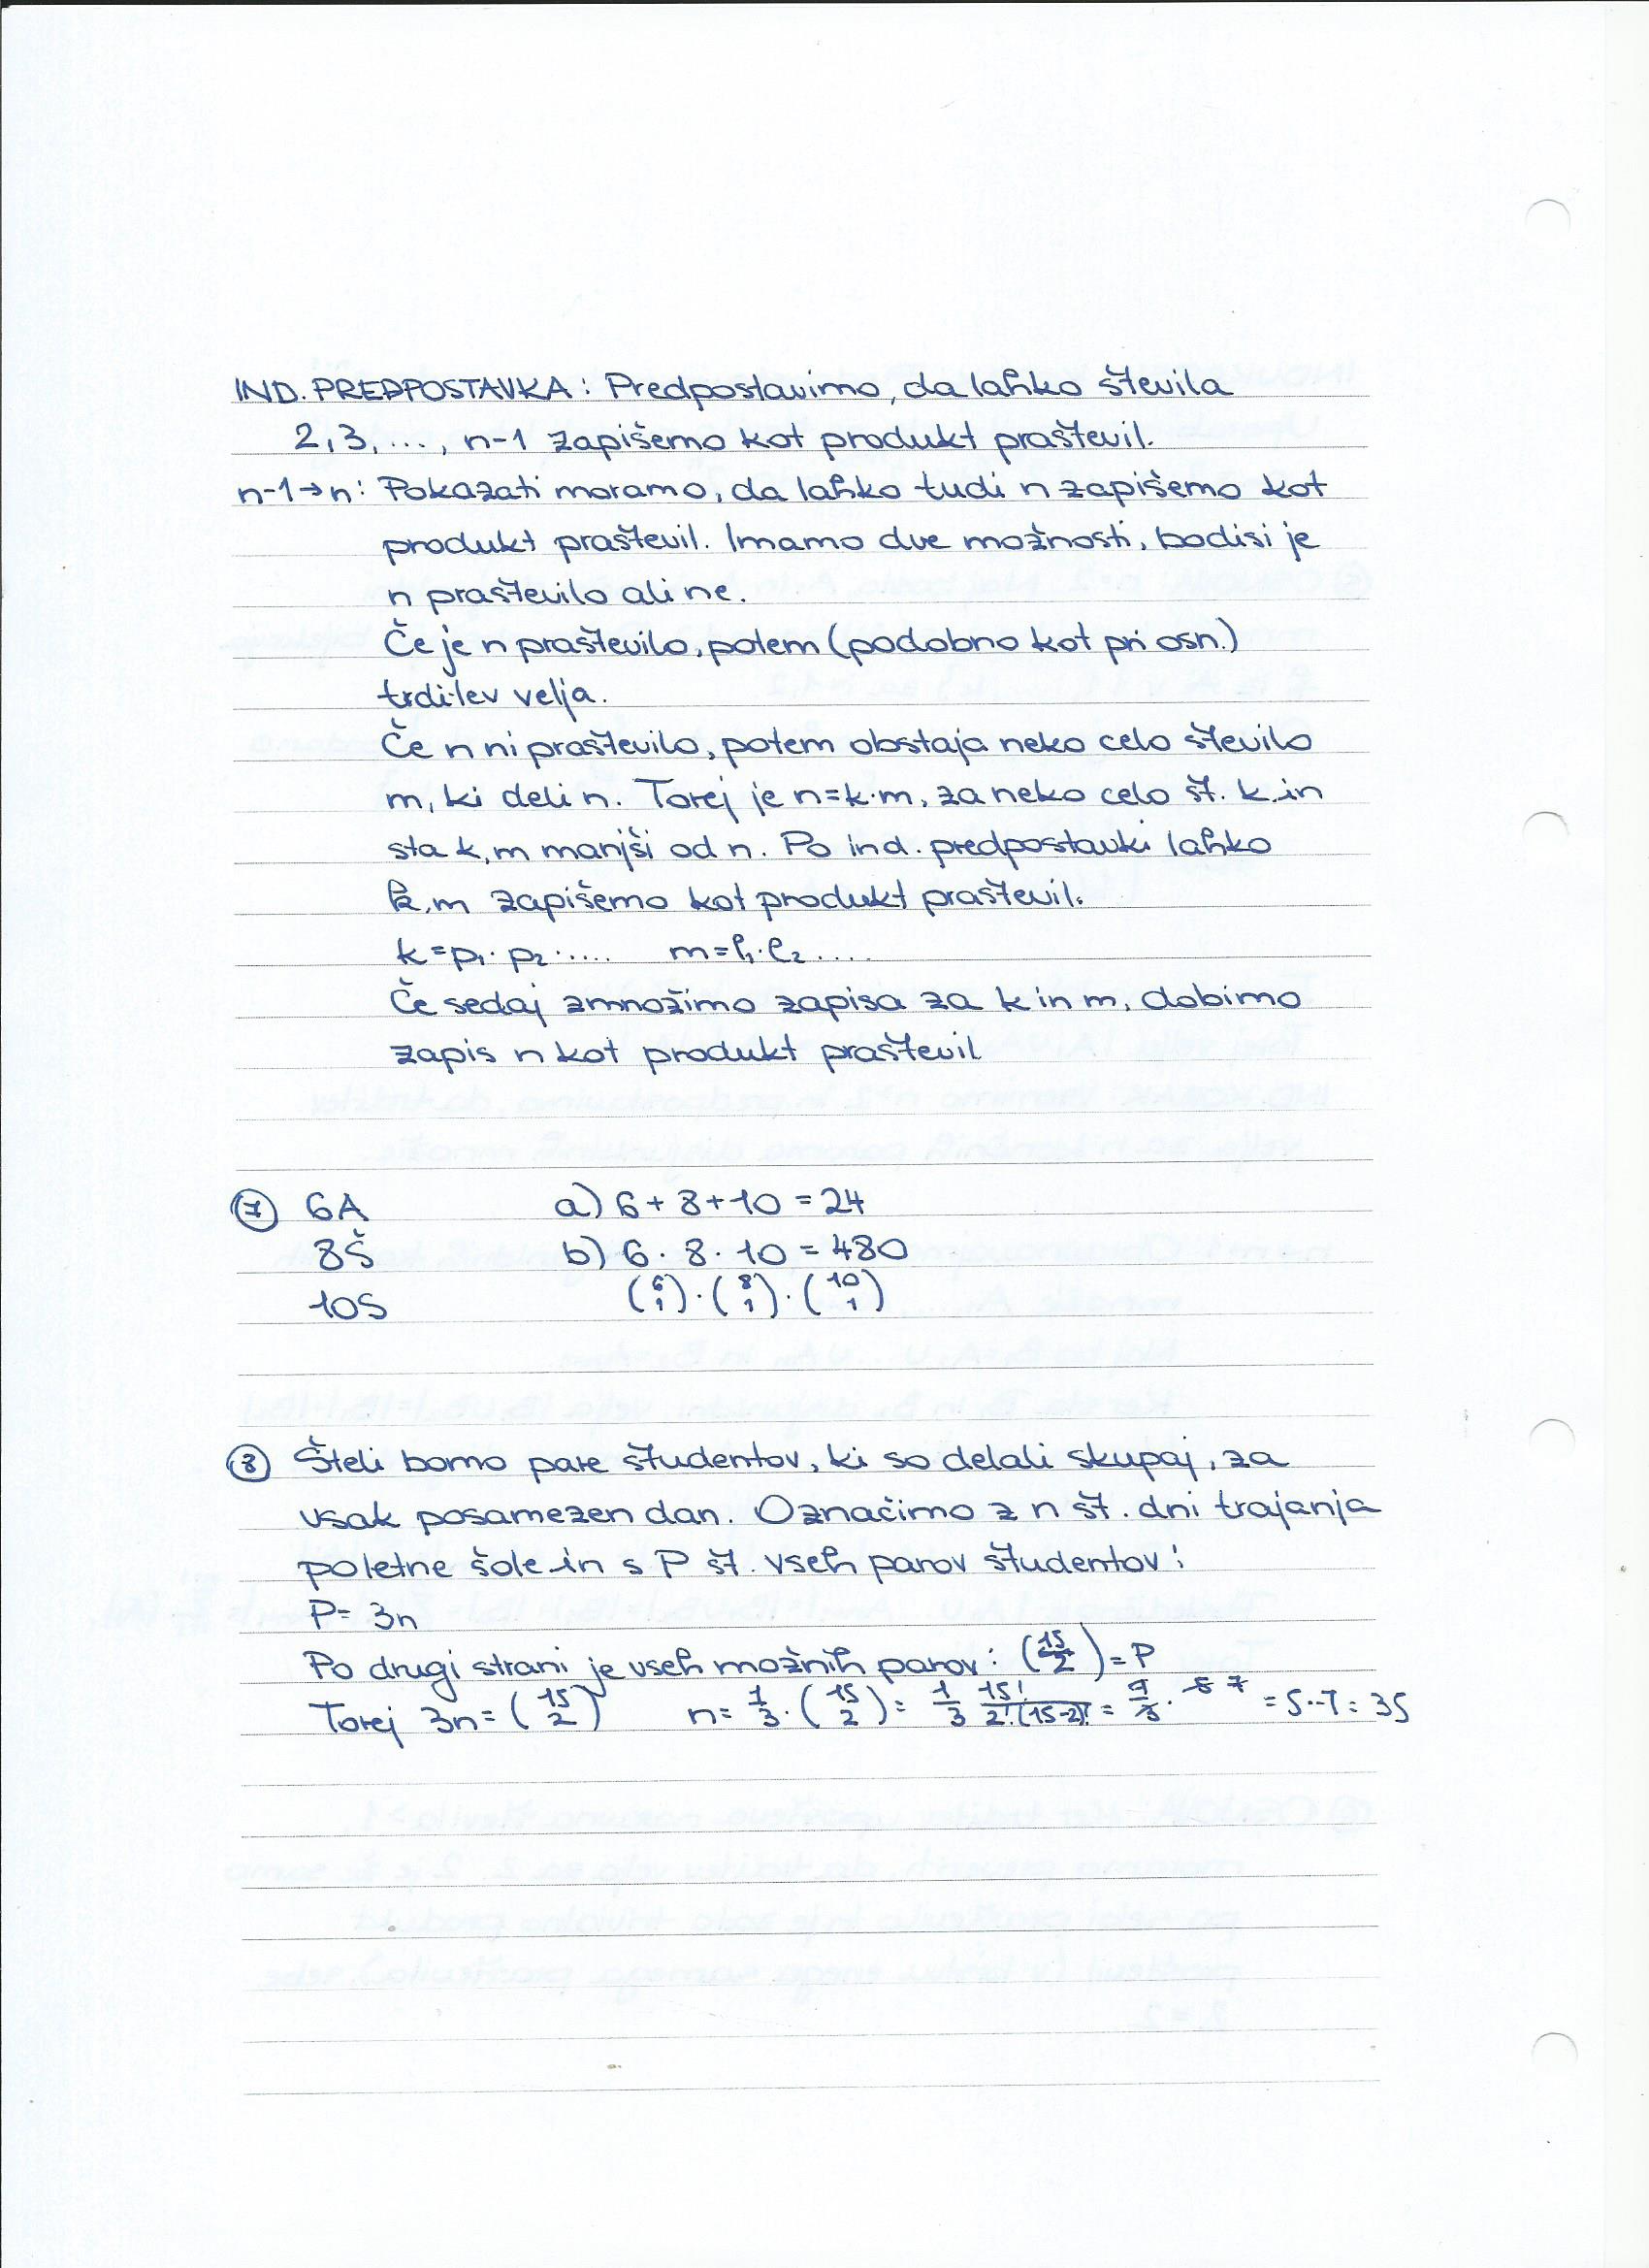 IND. PREDPOSTAVKA: Predpostavimo, da lahko števila
2, 3, ..., n-1 zapišemo kot produkt praštevil.
n-1→n: Pokazati moramo, da lahko tudi n zapišemo kot
produkt praštevil. Imamo dve možnosti, bodisi je
n praštevilo ali ne.
Če je n praštevilo, potem (podobno kot pri osn.)
trditev velja.
Če n ni praštevilo, potem obstaja neko celo število
m, ki deli n. Torej je n=k·m, za neko celo št. k in
sta k, m manjši od n. Po ind. predpostavki lahko
k, m zapišemo kot produkt praštevil.
k=p₁·p₂·.... m=l₁·l₂....
Če sedaj zmnožimo zapisa za k in m, dobimo
zapis n kot produkt praštevil
⑦ 6A a) 6+8+10=24
8Š b) 6·8·10=480
10S (6 1)·(8 1)·(10 1)
⑧ Šteli bomo pare študentov, ki so delali skupaj, za
vsak posamezen dan. Označimo z n št. dni trajanja
poletne šole in s P št. vseh parov študentov:
P= 3n
Po drugi strani je vseh možnih parov: (15 2)=P
Torej 3n=(15 2) n= 1/3·(15 2)= 1/3 15!/2!·(15-2)! = = 5·7= 35